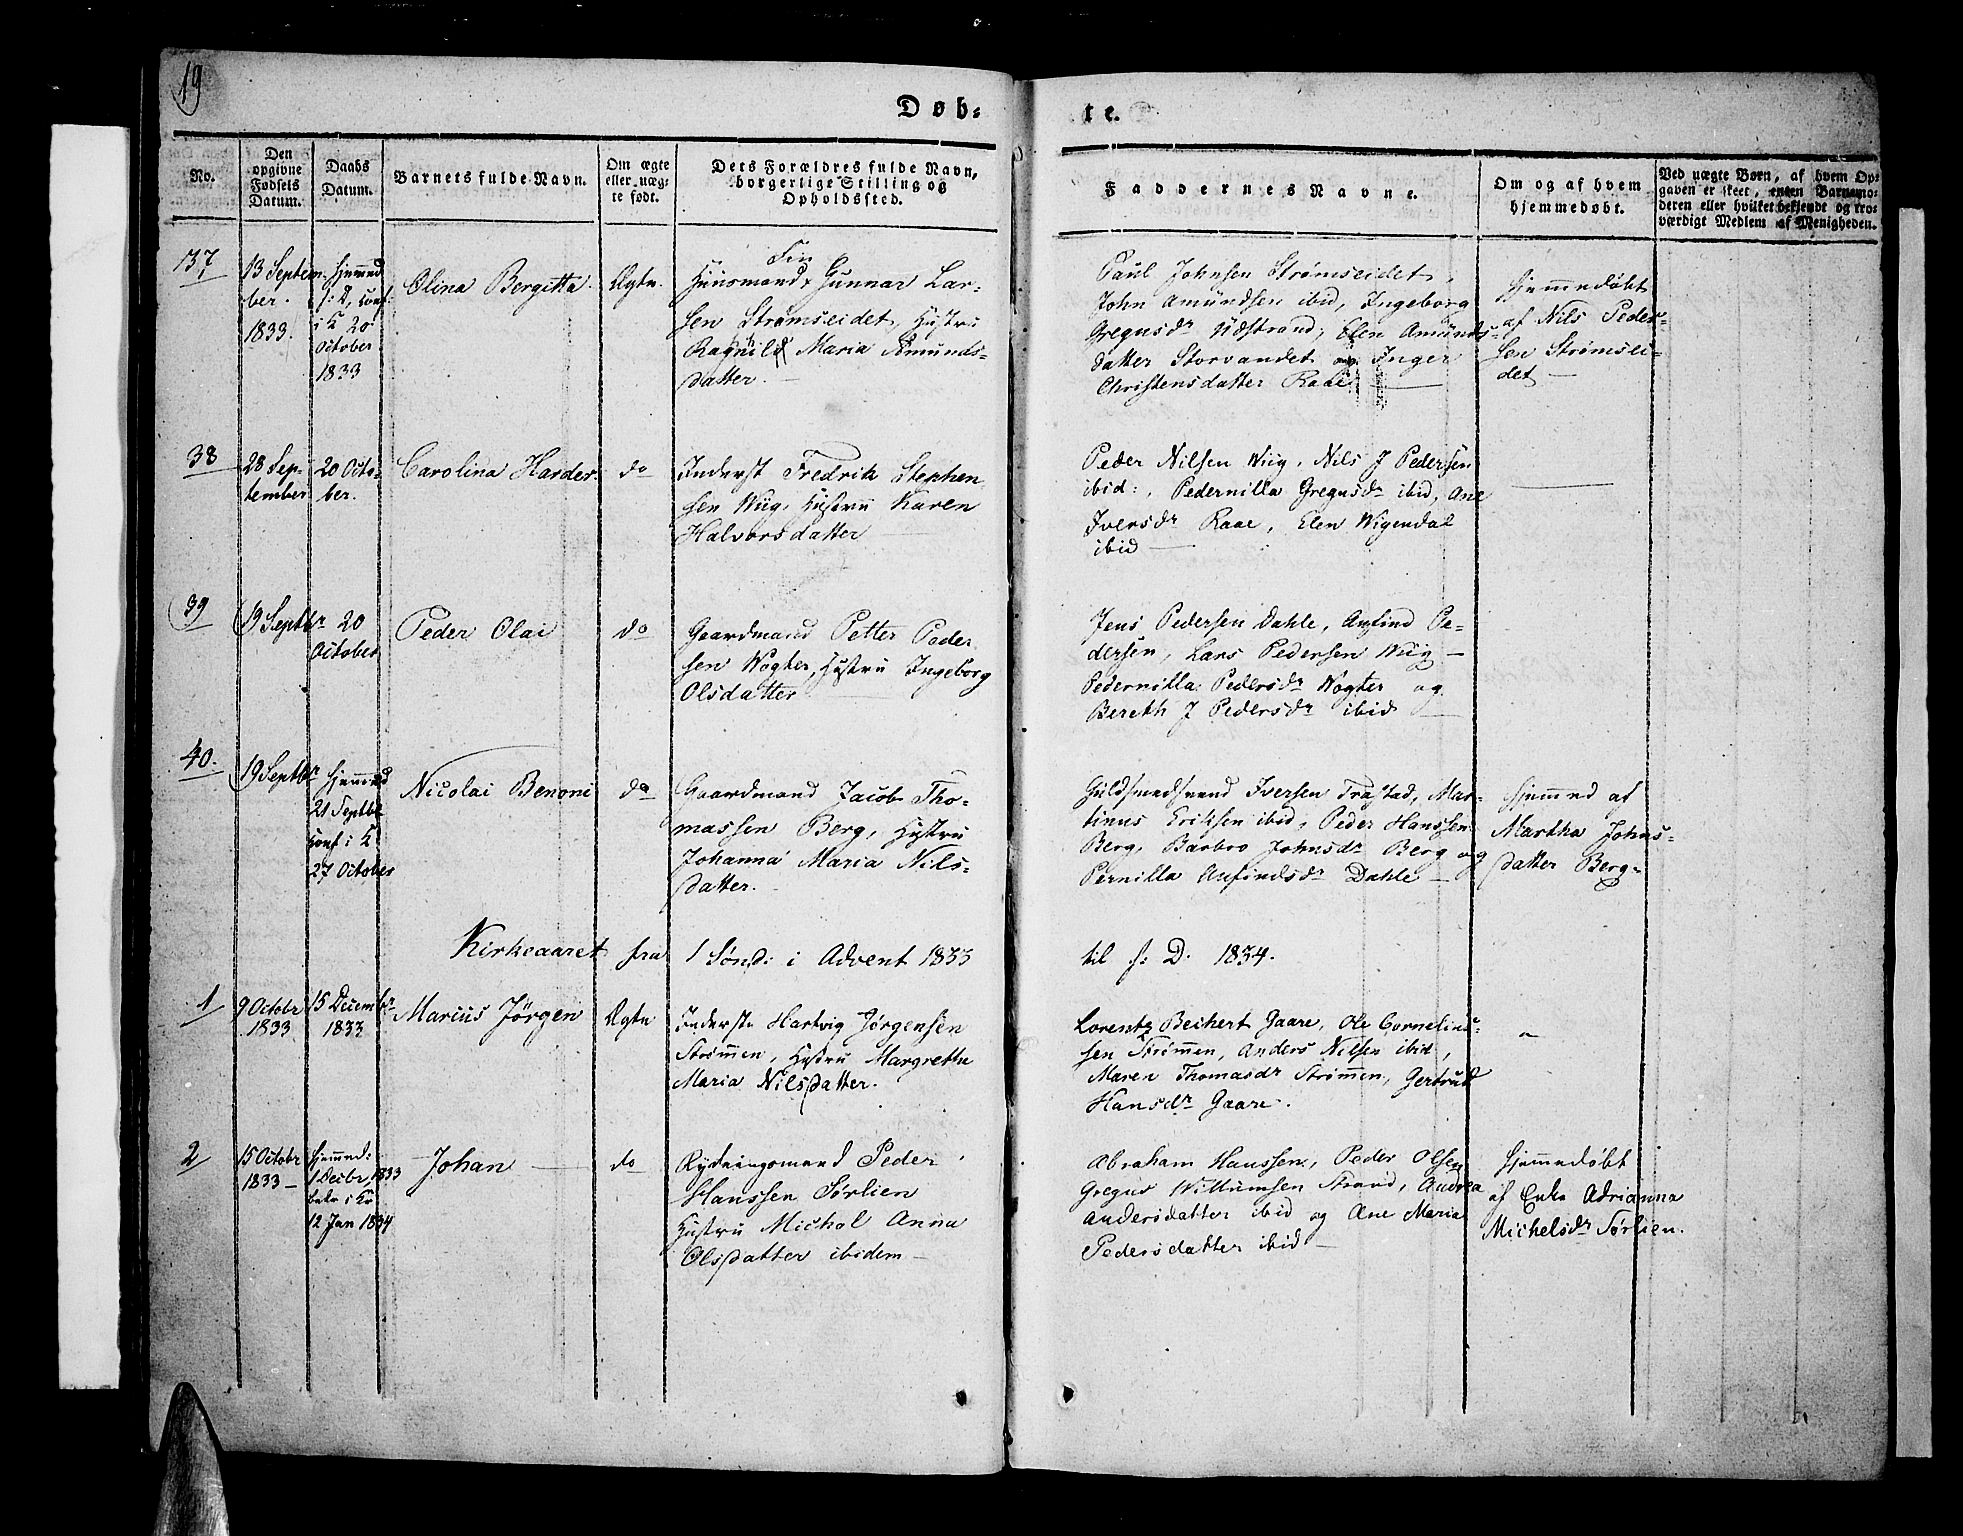 19
Døb-
te.
No.
Den opgivne Fødsels Datum.
Daabs Datum.
Barnets fulde Navn.
Om ægte eller uægte født.
Dets Forældres fulde Navn, borgerlige Stilling og Opholdssted.
Faddernes Navne.
Om og af hvem hjemmedøbt.
Ved uægte Børn, af hvem Opgaven er skeet, enten Barnemoderen eller hvilket bekjendt og troværdigt Medlem af Menigheden.
137
13 Septem-
ber.
1833.
hjemmed
f: D, conf:
i K 20
October
1833
Olina Bergitta.
Ægte.
Fin
Huusmand Gunnar Lar-
sen Strømseidet, Hustru
Ragnild Maria Amunds-
datter.
Paul Johnsen Strømseidet,
John Amundsen ibid, Ingeborg
Gregusdr Udstrand, Elen Amunds-
datter Storvandet og Inger
Christensdatter Raae
hjemmedøbt
af Nils Peder-
sen Strømsei-
det
38
28 Sep-
tember
20 Octo-
ber.
Carolina Harder.
do
Inderst Fredrik Stephen
sen Wiig, Hustru Karen
Halvorsdatter
Peder Nilsen Wiig, Nils J Pedersen
ibid:, Pedernilla Gregusdr ibid, Ane
Iversdr Raae, Elen Wigendal
ibid
39
19 Septbr
20
October
Peder Olai
do
Gaardmand Petter Peder
sen Nøgter, Hustru Ingeborg
Olsdatter
Jens Pedersen Dahle, Anfind Pe-
dersen, Lars Pedersen Wiig
Pedernilla Pedersdr Nøgter og
Bereth J Pedersdr ibid
40.
19 Septbr
hjemmed
21 Septbr
conf: i K
27 October
Nicolai Benoni
do
Gaardmand Jacob Tho-
massen Berg, Hustru
Johanna Maria Nils-
datter.
Guldsmedsvend Iversen Trastad, Mar-
tinus Eriksen ibid, Peder Hanssen
Berg, Barbro Johnsdr Berg og
Pernilla Anfindsdr Dahle
hjemmed af
Martha Johns-
datter Berg-
Kirkeaaret fra 1 Sønd: i Advent 1833
til s: D. 1834.
1
9 Octobr
1833
15 Decembr
1833
Marius Jörgen
Ægte
Inderste Hartvig Jørgensen
Strømmen, Hustru Margrethe
Maria Nilsdatter.
Lorentz Beckert Gaare, Ole Cornelius-
sen Strømmen, Anders Nilsen ibid,
Maren Thomasdr Strømmen, Gertrud
Hansdr Gaare.
2
15 Octobr
1833
hjemmed:
1 Decbr, 1833
betr i K
12 Jan 1834
Johan
do
Rydningsmand Peder
Hanssen Sørlien
Hustru Michol Anna
Olsdatter ibidem
Abraham Hanssen, Peder Olsen
Gregus Willumsen Strand, Andrea
Andersdatter ibid og Ane Maria
Pedersdatter ibid
hjemmedøbt
af Enke Adrianna
Michelsdr Sørlien.